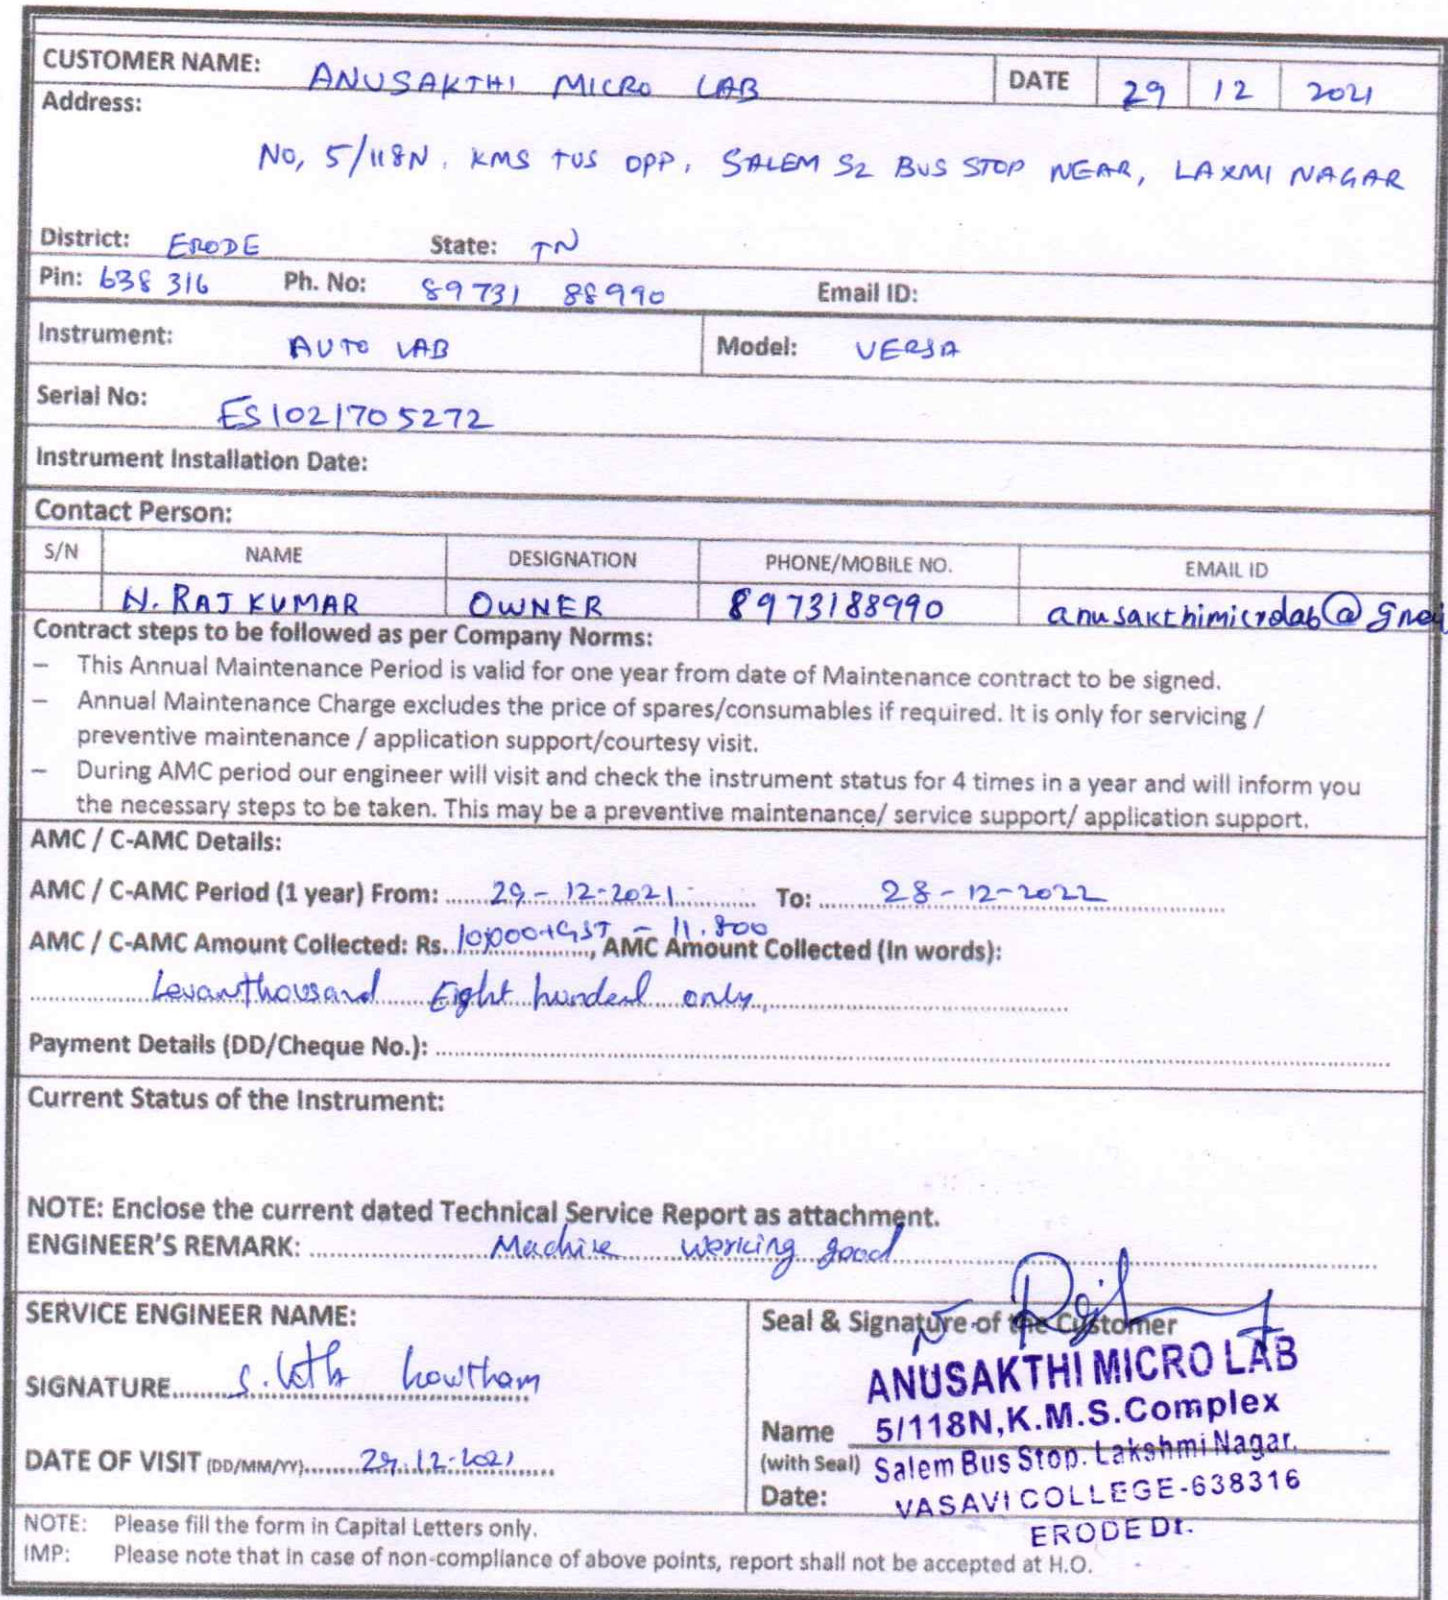 CUSTOMER NAME: ANUSAKTHI MICRO LAB DATE 29 12 2021
Address:
No, 5/118N. KMS TUS OPP, SALEM S2 BUS STOP NEAR, LAXMI NAGAR
District: ERODE State: TN
Pin: 638 316 Ph. No: 89731 88990 Email ID:
Instrument: AUTO LAB Model: VERSA
Serial No: ES1021705272
Instrument Installation Date:
Contact Person:
S/N NAME DESIGNATION PHONE/MOBILE NO. EMAIL ID
N. RAJ KUMAR OWNER 8973188990
Contract steps to be followed as per Company Norms:
– This Annual Maintenance Period is valid for one year from date of Maintenance contract to be signed.
– Annual Maintenance Charge excludes the price of spares/consumables if required. It is only for servicing /
preventive maintenance / application support/courtesy visit.
– During AMC period our engineer will visit and check the instrument status for 4 times in a year and will inform you
the necessary steps to be taken. This may be a preventive maintenance/ service support/ application support.
AMC / C-AMC Details:
AMC / C-AMC Period (1 year) From: 29-12-2021 To: 28-12-2022
AMC / C-AMC Amount Collected: Rs. 10,000+GST - 11.800, AMC Amount Collected (In words):
Levanthousand Eight hunderd only,
Payment Details (DD/Cheque No.):
Current Status of the Instrument:
NOTE: Enclose the current dated Technical Service Report as attachment.
ENGINEER'S REMARK: Machine working good
SERVICE ENGINEER NAME:
SIGNATURE
DATE OF VISIT (DD/MM/YY) 29.12.2021
Seal & Signature of the Customer
ANUSAKTHI MICRO LAB
Name 5/118N,K.M.S.Complex
(with Seal) Salem Bus Stop. Lakshmi Nagar.
Date: VASAVI COLLEGE-638316
ERODE Dt.
NOTE: Please fill the form in Capital Letters only.
IMP: Please note that in case of non-compliance of above points, report shall not be accepted at H.O.